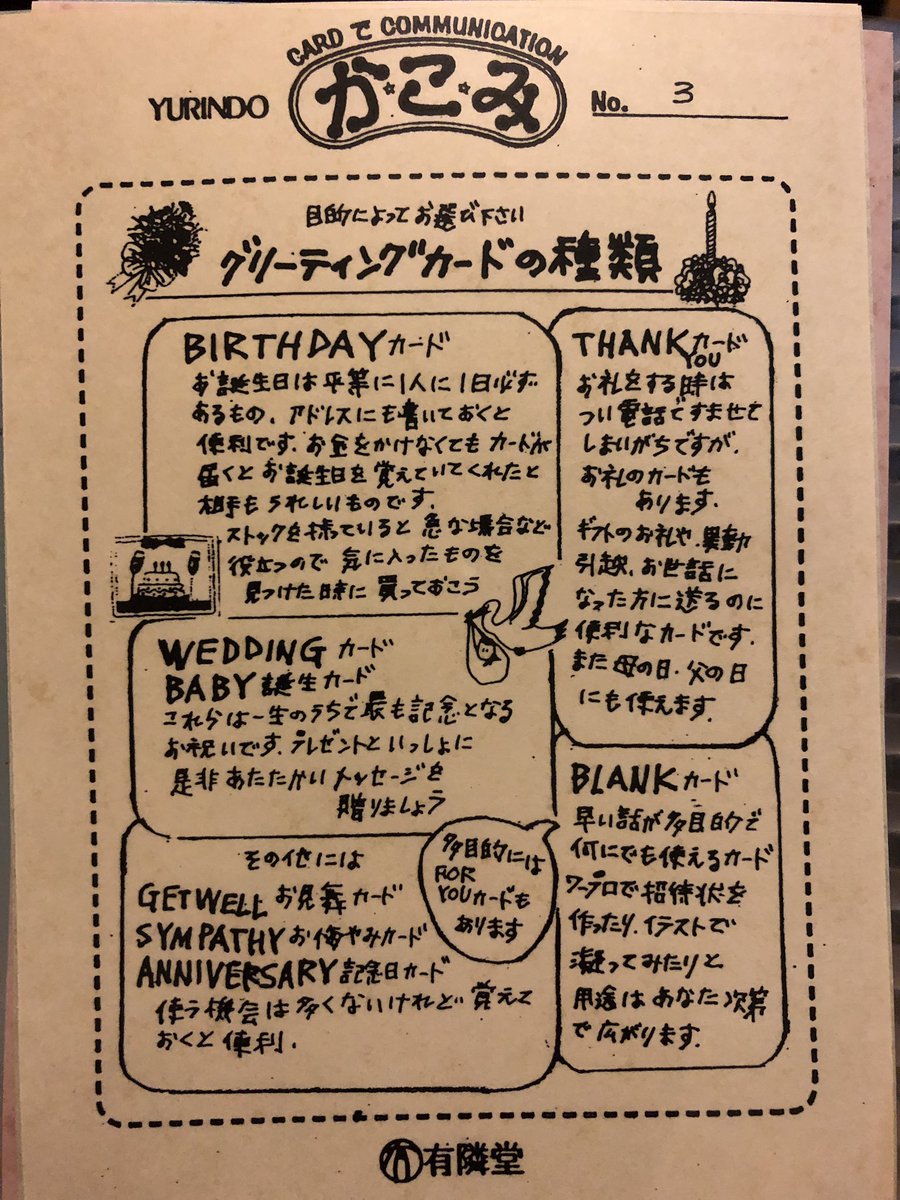 CARD で COMMUNICATION
YURINDO
か・こ・み
No. 3
目的によってお選び下さい
グリーティングカードの種類
BIRTHDAYカード
お誕生日は平等に1人に1日必ず
あるもの、アドレスにも書いておくと
便利です。お金をかけなくてもカードが
届くとお誕生日を覚えていてくれたと
相手もうれしいものです。
ストックを持っていると急な場合など
役立つので気に入ったものを
見つけた時に買っておこう
THANK YOU カード
お礼をする時は
つい電話ですませて
しまいがちですが、
お礼のカードも
あります。
ギフトのお礼や、異動
引越、お世話に
なった方に送るのに
便利なカードです。
また母の日、父の日
にも使えます。
WEDDING カード
BABY 誕生カード
これらは一生のうちで最も記念となる
お祝いです。プレゼントといっしょに
是非あたたかいメッセージを
贈りましょう
BLANK カード
早い話が多目的で
何にでも使えるカード
ワープロで招待状を
作ったり、イラストで
凝ってみたりと
用途はあなた次第
で広がります。
その他には
GET WELL お見舞カード
SYMPATHY お悔やみカード
ANNIVERSARY 記念日カード
使う機会は多くないけれど覚えて
おくと便利。
多目的には
FOR
YOUカードも
あります
有隣堂